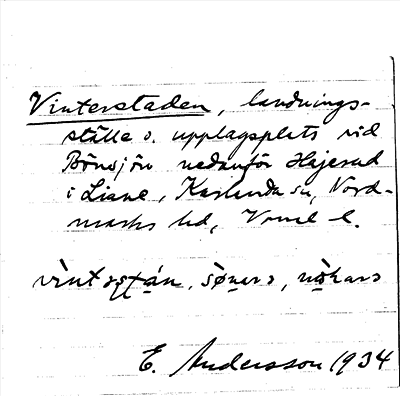 Vinterstaden, landnings-
ställe o. upplagsplats vid
Bönsjön nedanför Högerud
i Liane, Karlanda sn, Nord-
marks hd, Vrml l.
E. Andersson 1934